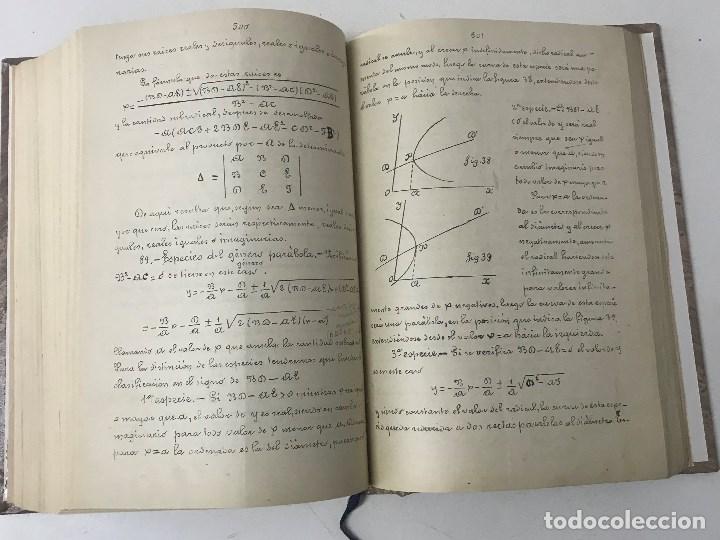 500
luego sus raices reales y desiguales, reales é iguales ó imagi-
narias.
La fórmula que da estas raices es
x = -(BD-AE) ± √(BD-AE)² - (B²-AC)(D²-AF) / B²-AC
y la cantidad subradical, despues de desarrollada
-A(ACF+2BDE-AE²-CD²-FB²)
que equivale al producto por -A de la determinante
Δ = | A B D |
| B C E |
| D E F |
De aquí resulta que, segun sea Δ menor, igual ó ma-
yor que cero, las raices serán respectivamente reales desi-
guales, reales iguales ó imaginarias.
89. - Especies del género parábola. -
género
B²-AC=0 se tiene en este caso
y = -B/A x - D/A ± 1/A √2(BD-AE)x+
= -B/A x - D/A ± 1/A √2(BD-AE)(x-α)
Llamando α el valor de x que anula la cantidad subradical
Para la distincion de las especies tendremos que
clasificacion en el signo de BD-AE
1ª especie. - Si BD-AE>0 mientras x sea
mayor que α, el valor de y es real, siendo en cambio
imaginario para todo valor de x menor que α
para x=α la ordenada es la del diámetro, pues
501
radical se anula, y al crecer x indefinidamente, dicho radical au-
menta del mismo modo, luego la curva de esta especie será una pa-
rábola en la posicion que indica la figura 38, extendiendose desde
el valor x=α hácia la derecha.
2ª especie. - Si BD-AE
<0 el valor de y será real
siempre que sea x igual
ó menor que α, siendo en
cambio imaginario para
todo valor de x mayor que α
Para x=α la ordena-
da es la correspondiente
al diámetro y al crecer x
negativamente, aumenta
el radical haciendose
infinitamente grande
para valores infinita-
y
D
P
D'
fig. 38
O
α
x
y
D
P
D'
fig. 39
O
α
x
mente grandes de x negativos, luego la curva de esta espe-
cie una parábola, en la posicion que indica la figura 39,
extendiendose desde el valor x=α hácia la izquierda.
3ª especie. - Si se verifica BD-AE=0 el valor de y
en este caso
y = -B/A x - D/A ± 1/A √D²-AF
y siendo constante el valor del radical, la curva de esta espe-
cie queda reducida á dos rectas paralelas al diámetro
todocoleccion
todocoleccion.net